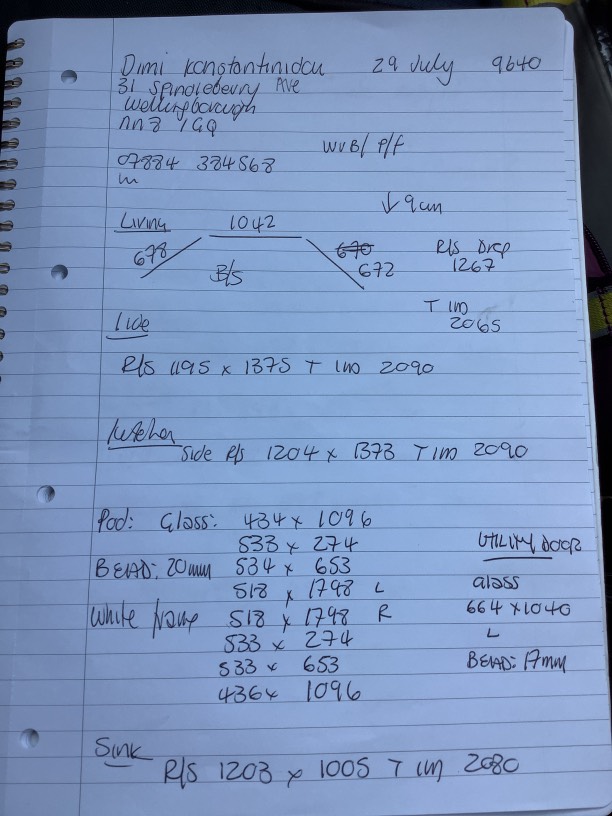 Dimi Konstantinidou 29 July 9640
31 Spindleberry Ave
Wellingborough
NN8
07884 384568
m
WVB/ P/F
↓9cm
Living 1042
678 670 672
B/S
R/S Drop
1267
T
2065
Side
R/S 1195 x 1375 T 2090
Kitchen
Side R/S 1204 x 1373 T 2090
Pod: Glass: 434 x 1096
533 x 274
BEAD: 20mm 534 x 653
518 x 1798 L
White 518 x 1798 R
533 x 274
533 x 653
436 x 1096
UTILITY DOOR
glass
664 x 1040
L
BEAD: 17mm
Sink
R/S 1203 x 1005 T 2080